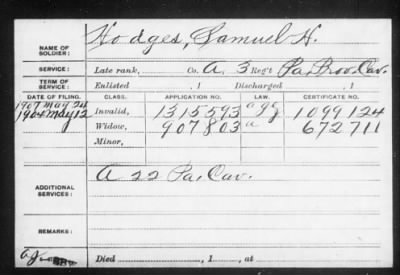 Hodges, Samuel H.
NAME OF SOLDIER:
SERVICE: Late rank, Co. A, 3 Reg't Pa. Prov. Cav.
TERM OF SERVICE: Enlisted , 1 Discharged , 1
DATE OF FILING. CLASS. APPLICATION NO. LAW. CERTIFICATE NO.
1907 May 24 Invalid, 1315593 1099124
1904 May 12 Widow, 907803 a 672711
Minor,
ADDITIONAL SERVICES: A 22 Pa. Cav.
REMARKS:
Died , 1 , at